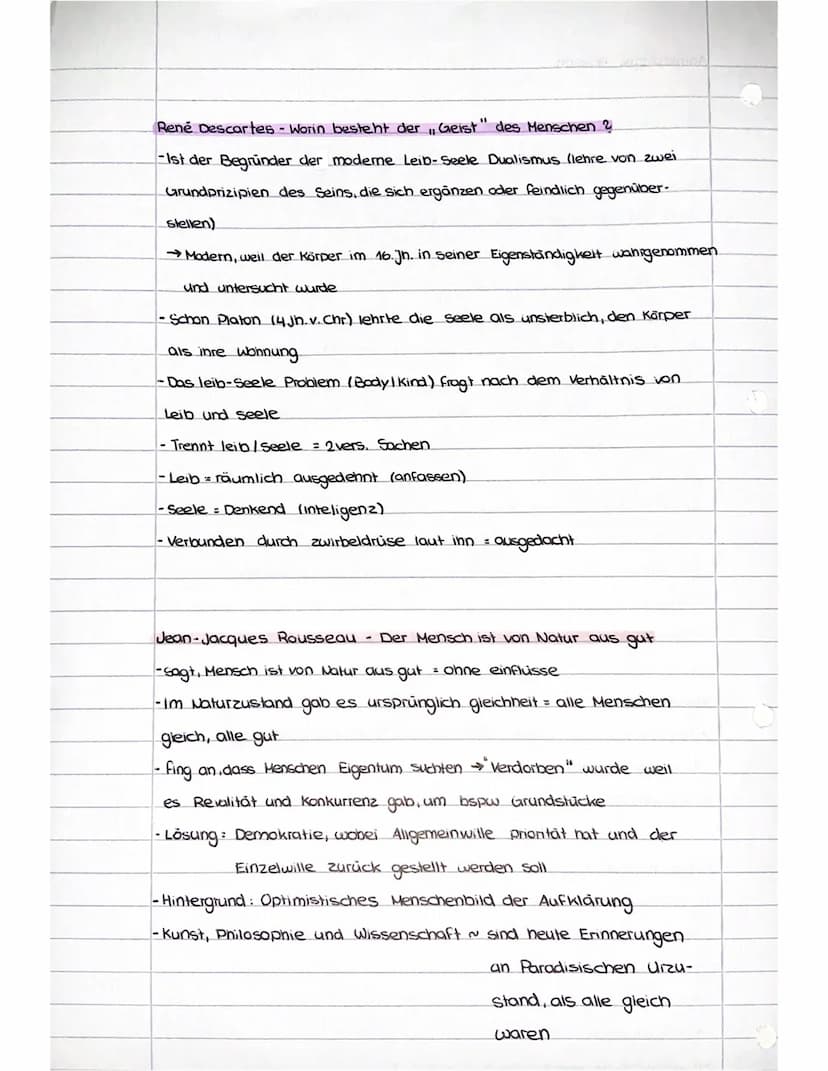 René Descartes - Worin besteht der „Geist" des Menschen?
- Ist der Begründer der moderne Leib-Seele Dualismus (lehre von zwei
Grundprizipien des Seins, die sich ergänzen oder feindlich gegenüber-
stellen)
→ Modern, weil der Körper im 16. Jh. in seiner Eigenständigkeit wahrgenommen
und untersucht wurde
- Schon Platon (4.Jh.v.Chr.) lehrte die Seele als unsterblich, den Körper
als ihre Wohnung
- Das leib-Seele Problem (Body/Kind) fragt nach dem Verhältnis von
Leib und Seele
- Trennt leib/Seele = 2 vers. Sachen
- Leib = räumlich ausgedehnt (anfassen)
- Seele = Denkend (inteligenz)
- Verbunden durch zwirbeldrüse laut ihn = ausgedacht
Jean-Jacques Rousseau - Der Mensch ist von Natur aus gut
- Sagt, Mensch ist von Natur aus gut = ohne einflüsse
- Im Naturzustand gab es ursprünglich gleichheit = alle Menschen
gleich, alle gut
- fing an, dass Menschen Eigentum suchten → "Verdorben" wurde weil
es Revalität und Konkurrenz gab, um bspw Grundstücke
- Lösung: Demokratie, wobei Allgemeinwille priorität hat und der
Einzelwille zurück gestellt werden soll
- Hintergrund: Optimistisches Menschenbild der Aufklärung
- Kunst, Philosophie und Wissenschaft ~ sind heute Erinnerungen
an Paradisischen Urzu-
stand, als alle gleich
waren